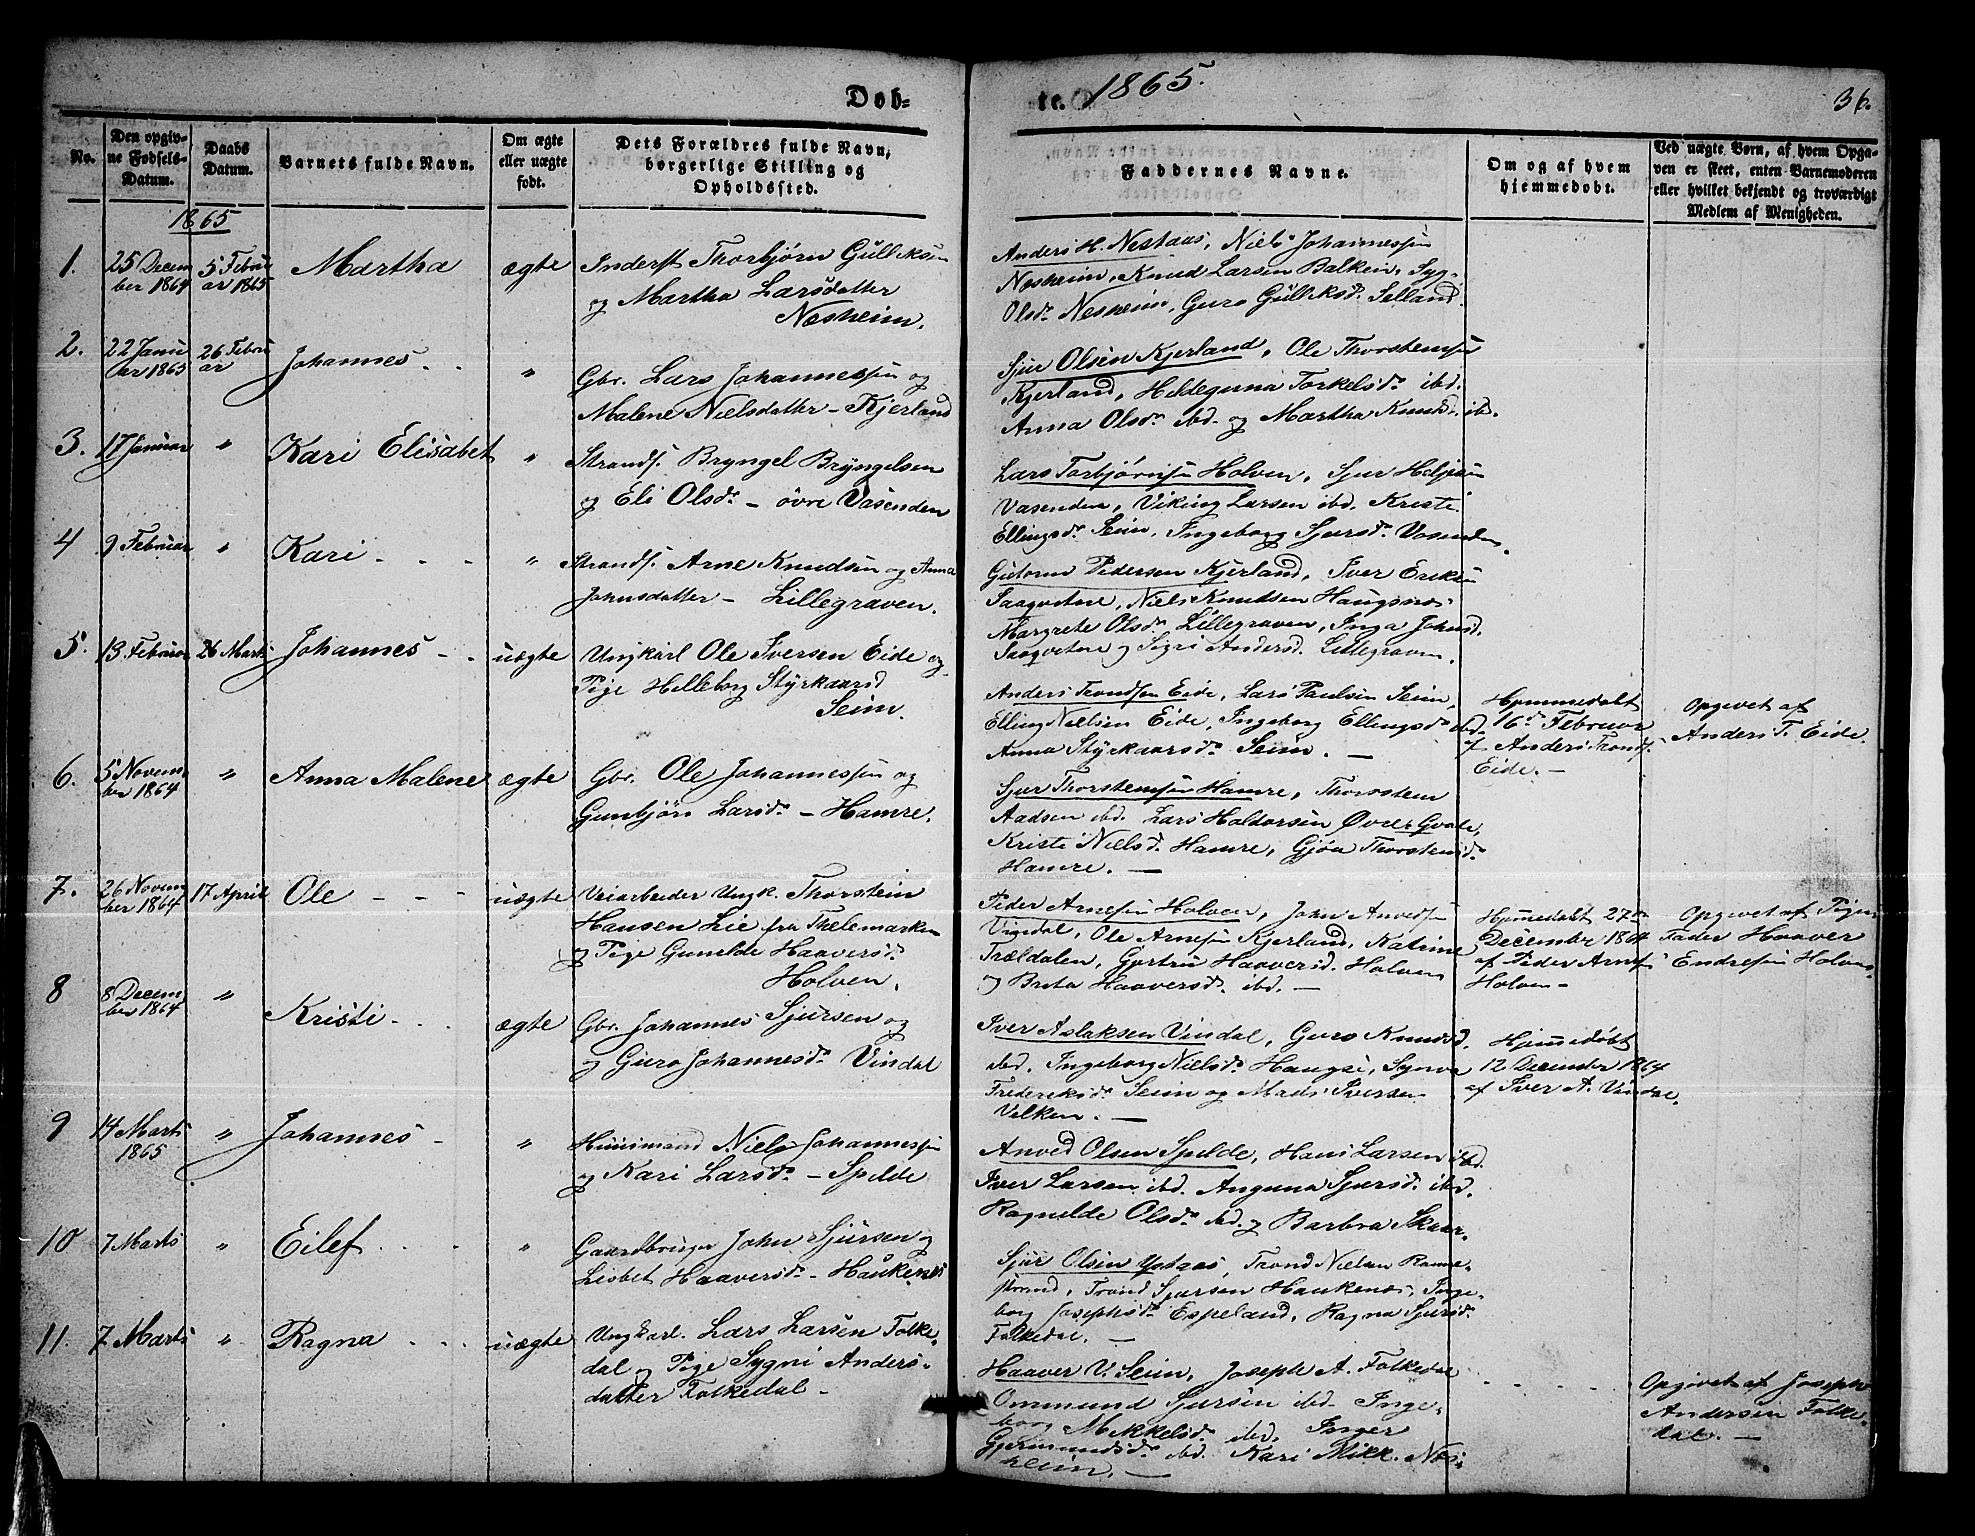 Døb=
te.
1865.
36.
No.
Den opgiv=
ne Fødsels=
Datum.
Daabs
Datum.
Barnets fulde Navn.
Om ægte
eller uægte
født.
Dets Forældres fulde Navn,
borgerlige Stilling og
Opholdssted.
Faddernes Navne.
Om og af hvem
hjemmedøbt.
Ved uægte Børn, af hvem Opga=
ven er skeet, enten Barnemoderen
eller hvilket bekjendt og troværdigt
Medlem af Menigheden.
1865
1.
25 Decem
ber 1864
5 Febru
ar 1865
Martha
ægte
Inderst Thorbjørn Gulliksen
og Martha Larsdatter
Næsheim.
Anders H. Nestaas, Niels Johannessen
Næsheim, Knud Larsen Balken, Syg-
Olsdr Nesheim, Guro Gulliksd. Selland.
2.
22 Janu
ar 1865
26 Febru
ar
Johannes
"
Gbr. Lars Johannessen og
Malene Nielsdatter - Kjerland
Sjur Olsen Kjerland, Ole Thorstensen
Kjerland, Hildeguna Torkelsdr ibd.
Anna Olsdr ibd. og Martha Knudsd. ibd.
3.
17 Januar
"
Kari Elisabet
"
Strands. Bryngel Bryngelsen
og Eli Olsdr - øvre Vasenden
Lars Torbjørnsen Holven, Sjur Helgesen
Vasenden, Viking Larsen ibd. Kristi
Ellingsdr Seim, Ingeborg Sjursdr Vasenden.
4
9 Februar
"
Kari
"
Strands. Arne Knudsen og Anna
Johnsdatter - Lillegraven.
Gutorm Pedersen Kjerland, Iver Eriksen
Saaqvitne, Niels Knudsen Haugsnæs
Margrete Olsdr Lillegraven, Inga Johnsd.
Saaqvitne og Sigri Andersd. Lillegraven.
5.
13 Februar
26 Marts
Johannes
uægte
Ungkarl Ole Iversen Eide og
Pige Helleborg Styrkaarsd
Seim.
Anders Trondsen Eide, Lars Paulsen Seim,
Elling Nielsen Eide, Ingeborg Ellingsdr ibd.
Anna Styrkaarsdr Seim. -
Hjemmedøbt
16d Februar
af Anders Tronds.
Eide. -
Opgivet af
Anders T. Eide.
6.
5 Novem
ber 1864
"
Anna Malene
ægte
Gbr. Ole Johannessen og
Gunbjør Larsdr - Hamre.
Sjur Thorstensen Hamre, Thorsten
Aadsen ibd. Lars Haldorsen Øvre Qvale,
Kristi Nielsd. Hamre, Gjøa Thorstensd.
Hamre. -
7.
26 Novem
ber 1864
17 April
Ole
uægte
Veiarbeider Ungk. Thorstein
Hansen Lie fra Thelemarken
og Pige Gunilde Haaversdr
Holven.
Peder Arnesen Holven, John Anvedsen
Vindal, Ole Arnesen Kjerland, Katrine
Trældalen, Gjertru Haaversd. Holven
og Brita Haaversdr ibd. -
Hjemmedøbt 27de
December 1864
af Peder Arnes.
Holven -
Opgivet af Pigens
Fader Haaver
Endresen Holven
8
8 Decem
ber 1864
"
Kristi
ægte
Gbr. Johannes Sjursen og
og Guro Johannesdr Vindal
Iver Aslaksen Vindal, Guro Knudsd.
ibd. Ingeborg Nielsdr Haugse, Synva
Frederiksdr Seim og Mads Iversen
Velken. -
Hjemmedøbt
12 December 1864
af Iver A. Vindal.
9
14 Marts
1865
"
Johannes
"
Huusmand Niels Johannessen
og Kari Larsdr - Spilde
Anved Olsen Spilde, Hans Larsen ibd.
Iver Larsen ibd. Anguna Sjursdr ibd.
Ragnilde Olsdr ibd. og Barbra Skaar.
10
7 Marts
"
Eilef
"
Gaardbruger John Sjursen og
Lisbet Haaversdr - Haukenes
Sjur Olsen Ystaas, Trond Nielsen Ronne-
strand, Trond Sjursen Haukenæs, Inge-
borg Josephsdr Espeland, Ragna Sjursdr
Folkedal. -
11.
7 Marts
"
Ragna
uægte
Ungkarl. Lars Larsen Folke-
dal og Pige Sygni Anders-
datter Folkedal -
Haaver V. Seim, Joseph A. Folkedal
Ommund Sjursen ibd. Inge-
borg Mikkelsdr ibd. Inger
Gjermundsdr ibd. Kari Mikk. Næs-
heim. -
Opgivet af Joseph
Andersen Folke-
dal. -